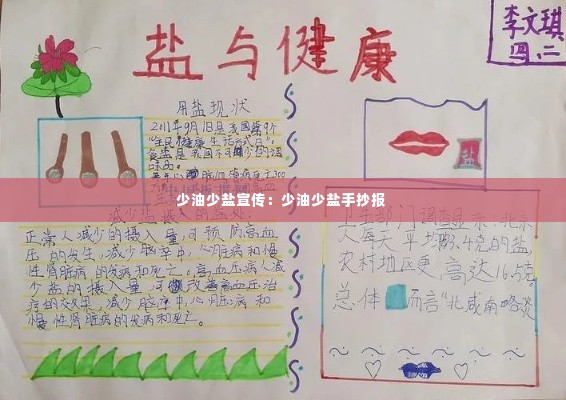 盐与健康
李文琪
四.二
用盐现状
2011年9月18日是我国第9个
“全民健康生活方式日”
食盐是我国不可缺少的调
味品。
少油少盐宣传：少油少盐手抄报
减少盐摄入的益处
正常人减少的摄入量，可预防高血
压的发生，减少脑卒中，心脏病和慢
性肾脏病的发病和死亡。高血压病人减
少盐的摄入量，可改善高血压治
疗的效果，减少脑卒中，心脏病和
慢性肾脏病的发病和死亡。
盐
卫生部门调查显示，北京
人每天平均13.4克的盐，
农村地区更高达16.5克
总体而言“北咸南